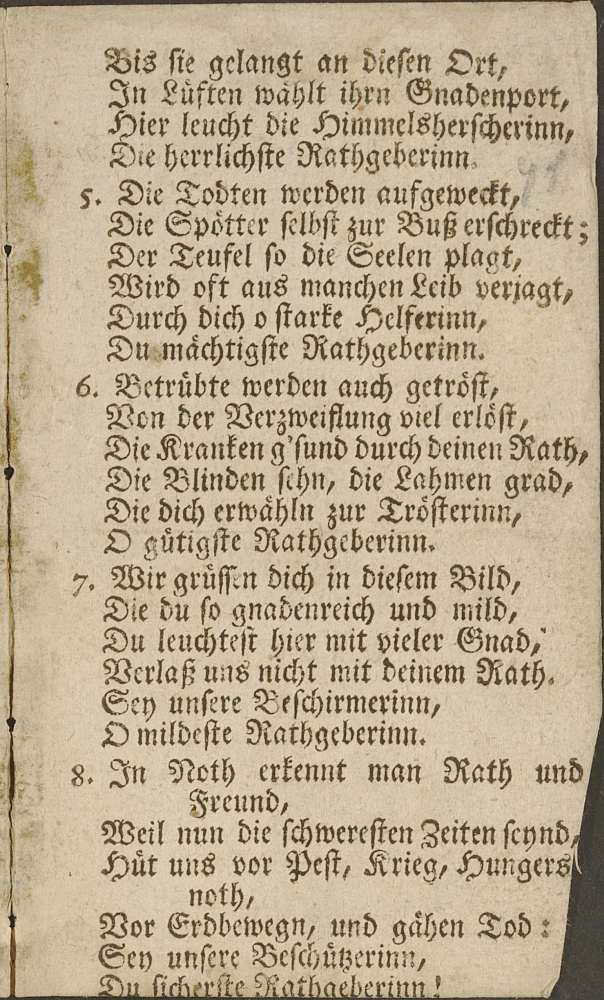 Bis sie gelangt an diesen Ort,
In Lüften wählt ihrn Gnadenport,
Hier leucht die Himmelsherscherinn,
Die herrlichste Rathgeberinn.
5. Die Todten werden aufgeweckt,
Die Spötter selbst zur Buß erschreckt;
Der Teufel so die Seelen plagt,
Wird oft aus manchen Leib verjagt,
Durch dich o starke Helferinn,
Du mächtigste Rathgeberinn.
6. Betrübte werden auch getröst,
Von der Verzweiflung viel erlöst,
Die Kranken g'sund durch deinen Rath,
Die Blinden sehn, die Lahmen grad,
Die dich erwähln zur Trösterinn,
O gütigste Rathgeberinn.
7. Wir grüssen dich in diesem Bild,
Die du so gnadenreich und mild,
Du leuchtest hier mit vieler Gnad,
Verlaß uns nicht mit deinem Rath.
Sey unsere Beschirmerinn,
O mildeste Rathgeberinn.
8. In Noth erkennt man Rath und
Freund,
Weil nun die schweresten Zeiten seynd,
Hüt uns vor Pest, Krieg, Hungers
noth,
Vor Erdbewegn, und gähen Tod:
Sey unsere Beschützerinn,
Du sicherste Rathgeberinn!